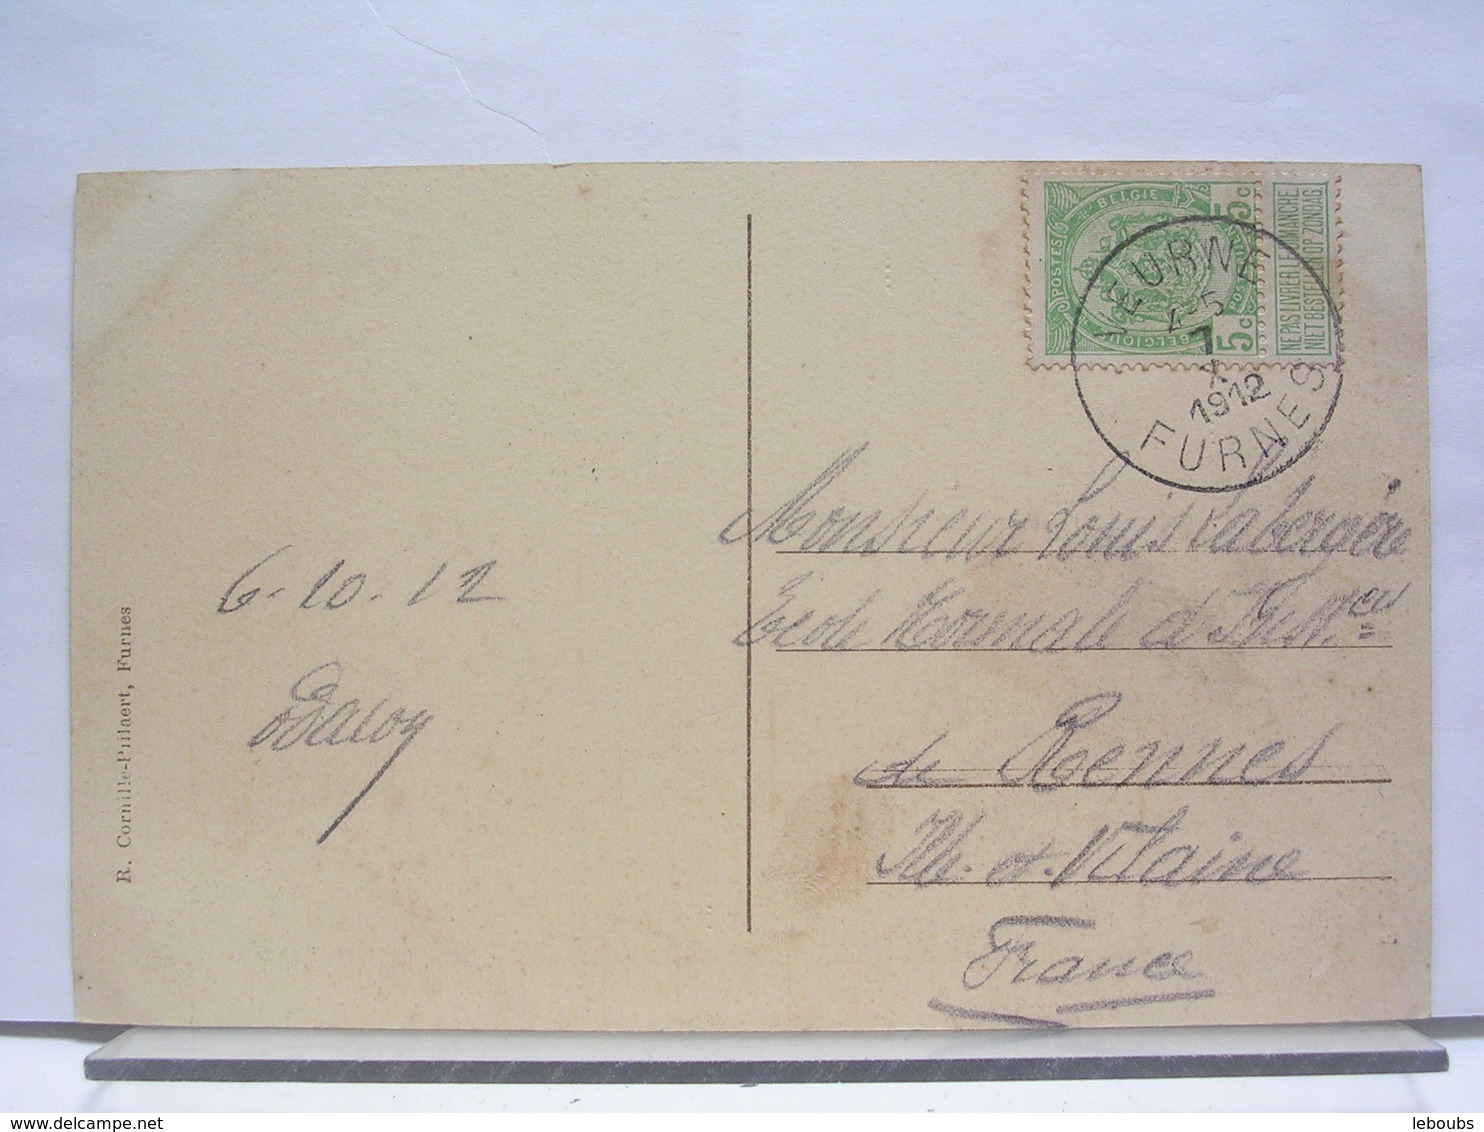 POSTES BELGIE POSTERIJEN BELGIQUE
5c 5c
NE PAS LIVRER LE DIMANCHE
NIET BESTELLEN OP ZONDAG
VEURNE
4-5
7
X
1912
FURNES
Monsieur Louis Labergère
Ecole Normale d'Inst.
de Rennes
Ille. et. Vilaine
France
6.10.12
R. Cornille-Pillaert, Furnes
delcampe.net
leboubs